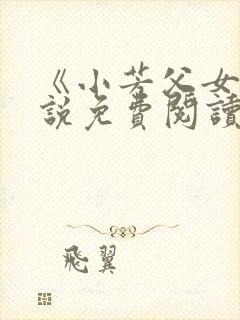 《小芳父女
說免費閱讀
飛翼